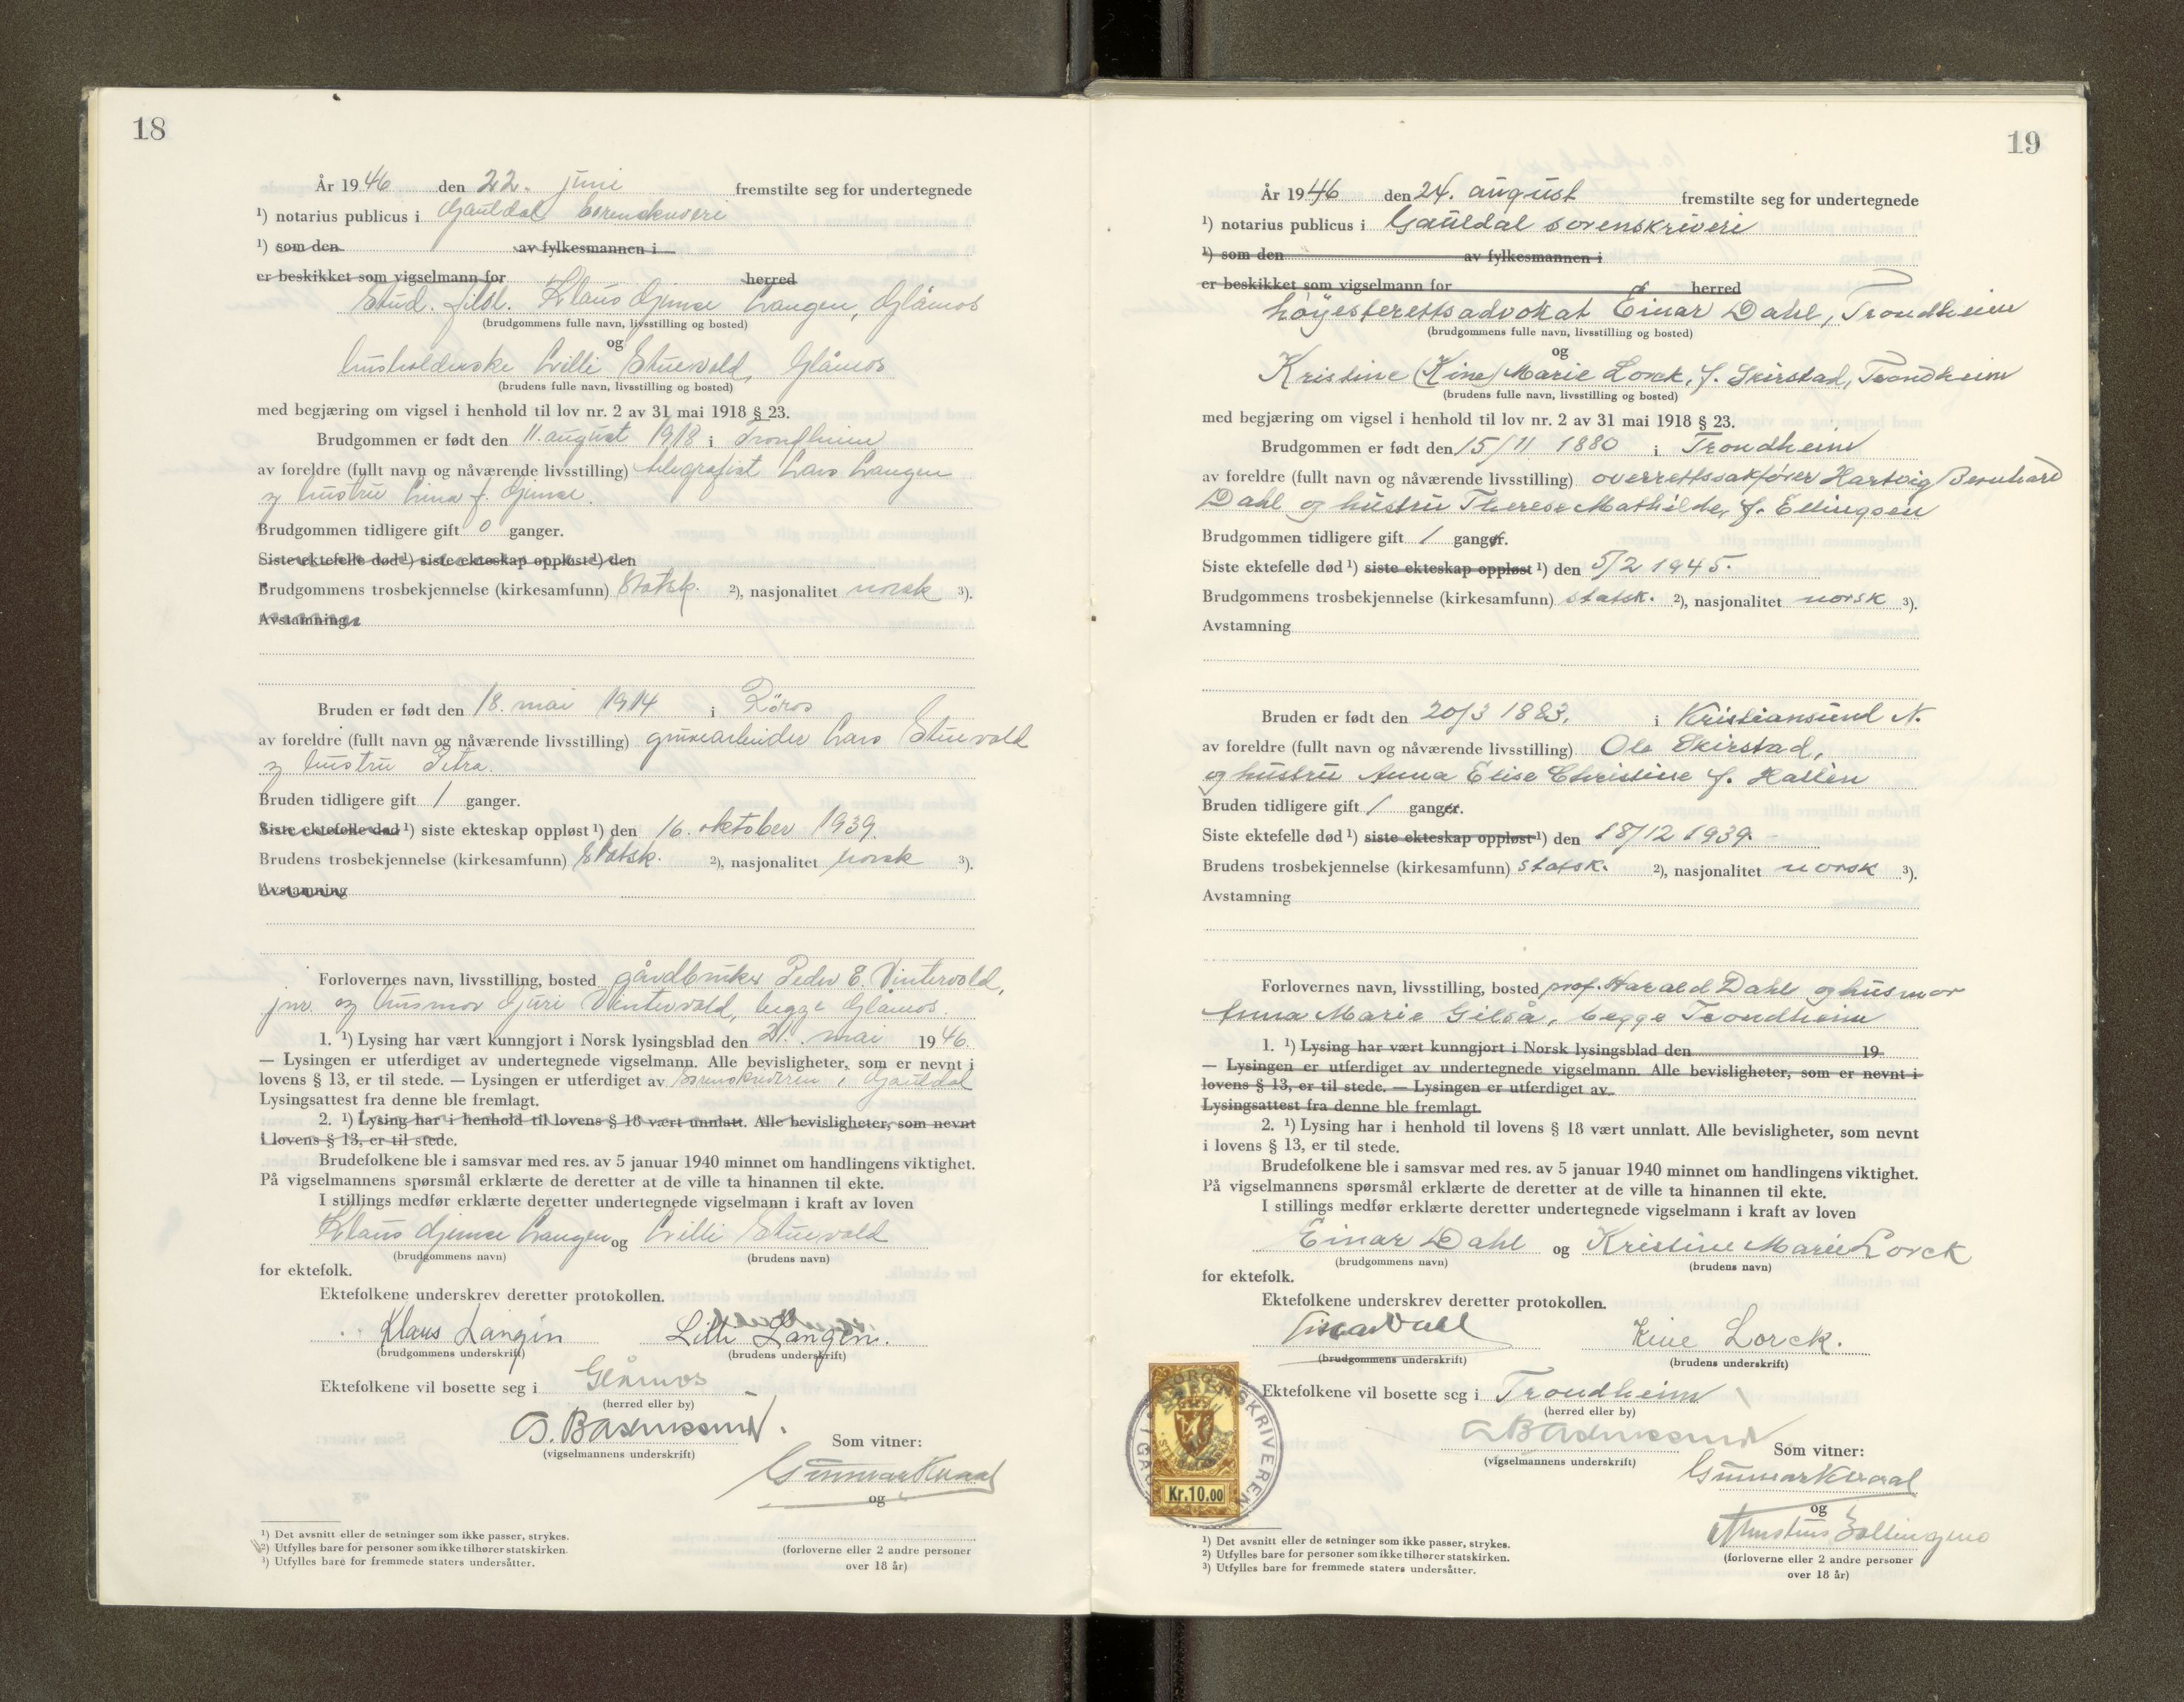 18
År 1946 den 22. juni fremstilte seg for undertegnede
¹) notarius publicus i Gauldal sorenskriveri
¹) som den av fylkesmannen i
er beskikket som vigselmann for herred
Stud. filol. Klaus Gjemse Langen, Glåmos
(brudgommens fulle navn, livsstilling og bosted)
og
husholderske Lilli Stuevold, Glåmos
(brudens fulle navn, livsstilling og bosted)
med begjæring om vigsel i henhold til lov nr. 2 av 31 mai 1918 § 23.
Brudgommen er født den 11. august 1918 i Trondheim
av foreldre (fullt navn og nåværende livsstilling) telegrafist Lars Langen
og hustru f.
Brudgommen tidligere gift 0 ganger.
Siste ektefelle død ¹) siste ekteskap oppløst ¹) den
Brudgommens trosbekjennelse (kirkesamfunn) Statsk. ²), nasjonalitet norsk ³).
Avstamning
Bruden er født den 18. mai 1914 i Röros
av foreldre (fullt navn og nåværende livsstilling) gruvearbeider Lars Stuevold
og hustru Petra.
Bruden tidligere gift 1 ganger.
Siste ektefelle død ¹) siste ekteskap oppløst ¹) den 16. oktober 1939
Brudens trosbekjennelse (kirkesamfunn) Statsk. ²), nasjonalitet norsk ³).
Avstamning
Forlovernes navn, livsstilling, bosted gårdbruker Peder E. Vintervold,
jnr. og husmor Guri Vintervold, begge Glåmos.
1. ¹) Lysing har vært kunngjort i Norsk lysingsblad den 21. mai 1946.
— Lysingen er utferdiget av undertegnede vigselmann. Alle bevisligheter, som er nevnt i
lovens § 13, er til stede. — Lysingen er utferdiget av sorenskriveren i Gauldal
Lysingsattest fra denne ble fremlagt.
2. ¹) Lysing har i henhold til lovens § 18 vært unnlatt. Alle bevisligheter, som nevnt
i lovens § 13, er til stede.
Brudefolkene ble i samsvar med res. av 5 januar 1940 minnet om handlingens viktighet.
På vigselmannens spørsmål erklærte de deretter at de ville ta hinannen til ekte.
I stillings medfør erklærte deretter undertegnede vigselmann i kraft av loven
Klaus Gjemse Langen og Lilli Stuevold
(brudgommens navn) (brudens navn)
for ektefolk.
Ektefolkene underskrev deretter protokollen.
Klaus Langen Lilli Langen.
(brudgommens underskrift) (brudens underskrift)
Ektefolkene vil bosette seg i Glåmos
(herred eller by)
(vigselmannens underskrift)
Som vitner:
Gunnar Kvaal
og
¹) Det avsnitt eller de setninger som ikke passer, strykes.
²) Utfylles bare for personer som ikke tilhører statskirken.
³) Utfylles bare for fremmede staters undersåtter.
(forloverne eller 2 andre personer
over 18 år)
19
År 1946 den 24. august fremstilte seg for undertegnede
¹) notarius publicus i Gauldal sorenskriveri
¹) som den av fylkesmannen i
er beskikket som vigselmann for herred
höyesterettsadvokat Einar Dahl, Trondheim
(brudgommens fulle navn, livsstilling og bosted)
og
Kristine (Kine) Marie Lorck, f. Skirstad, Trondheim
(brudens fulle navn, livsstilling og bosted)
med begjæring om vigsel i henhold til lov nr. 2 av 31 mai 1918 § 23.
Brudgommen er født den 15/11 1880 i Trondheim
av foreldre (fullt navn og nåværende livsstilling) overrettssakfører Hartvig Bernhard
Dahl og hustru Therese Mathilde, f. Ellingsen
Brudgommen tidligere gift 1 ganger.
Siste ektefelle død ¹) siste ekteskap oppløst ¹) den 5/2 1945.
Brudgommens trosbekjennelse (kirkesamfunn) statsk. ²), nasjonalitet norsk ³).
Avstamning
Bruden er født den 20/3 1883. i Kristiansund N.
av foreldre (fullt navn og nåværende livsstilling) Ole Skirstad,
og hustru Anna Elise Christine f. Hallèn
Bruden tidligere gift 1 ganger.
Siste ektefelle død ¹) siste ekteskap oppløst ¹) den 18/12 1939.
Brudens trosbekjennelse (kirkesamfunn) statsk. ²), nasjonalitet norsk ³).
Avstamning
Forlovernes navn, livsstilling, bosted prof. Harald Dahl og husmor
Anna Marie Gilså, begge Trondheim
1. ¹) Lysing har vært kunngjort i Norsk lysingsblad den 19
— Lysingen er utferdiget av undertegnede vigselmann. Alle bevisligheter, som er nevnt i
lovens § 13, er til stede. — Lysingen er utferdiget av
Lysingsattest fra denne ble fremlagt.
2. ¹) Lysing har i henhold til lovens § 18 vært unnlatt. Alle bevisligheter, som nevnt
i lovens § 13, er til stede.
Brudefolkene ble i samsvar med res. av 5 januar 1940 minnet om handlingens viktighet.
På vigselmannens spørsmål erklærte de deretter at de ville ta hinannen til ekte.
I stillings medfør erklærte deretter undertegnede vigselmann i kraft av loven
Einar Dahl og Kristine Marie Lorck
(brudgommens navn) (brudens navn)
for ektefolk.
Ektefolkene underskrev deretter protokollen.
Einar Dahl Kine Lorck.
(brudgommens underskrift) (brudens underskrift)
Ektefolkene vil bosette seg i Trondheim
(herred eller by)
(vigselmannens underskrift)
Som vitner:
Gunnar Kvaal
og
(forloverne eller 2 andre personer
over 18 år)
SORENSKRIVEREN I GAULDAL
Kr.10.00
¹) Det avsnitt eller de setninger som ikke passer, strykes.
²) Utfylles bare for personer som ikke tilhører statskirken.
³) Utfylles bare for fremmede staters undersåtter.